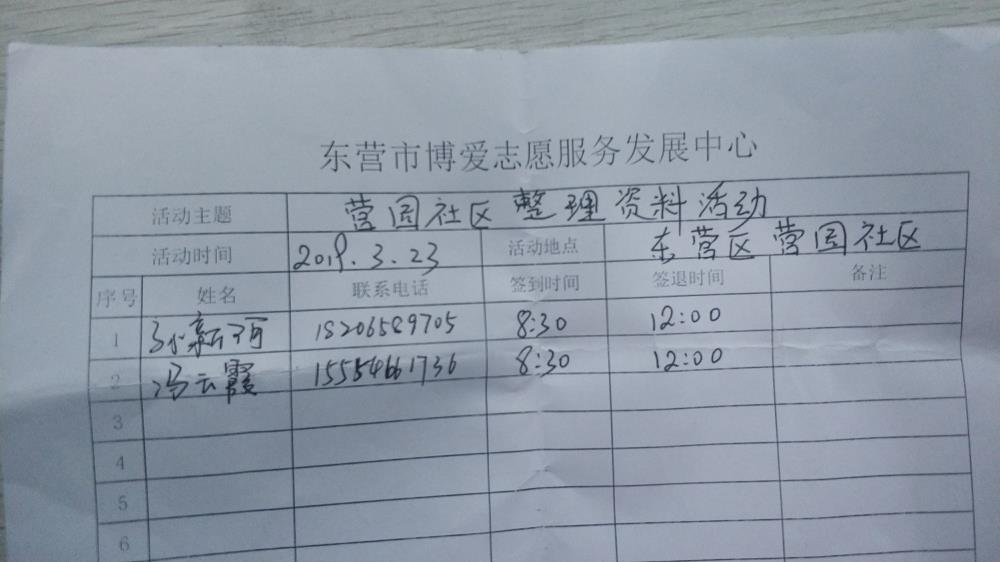 东营市博爱志愿服务发展中心
活动主题 营园社区 整理资料活动
活动时间 2019.3.23 活动地点 东营区营园社区
序号 姓名 联系电话 签到时间 签退时间 备注
1 18206589705 8:30 12:00
2 冯云霞 15554661736 8:30 12:00
3
4
5
6